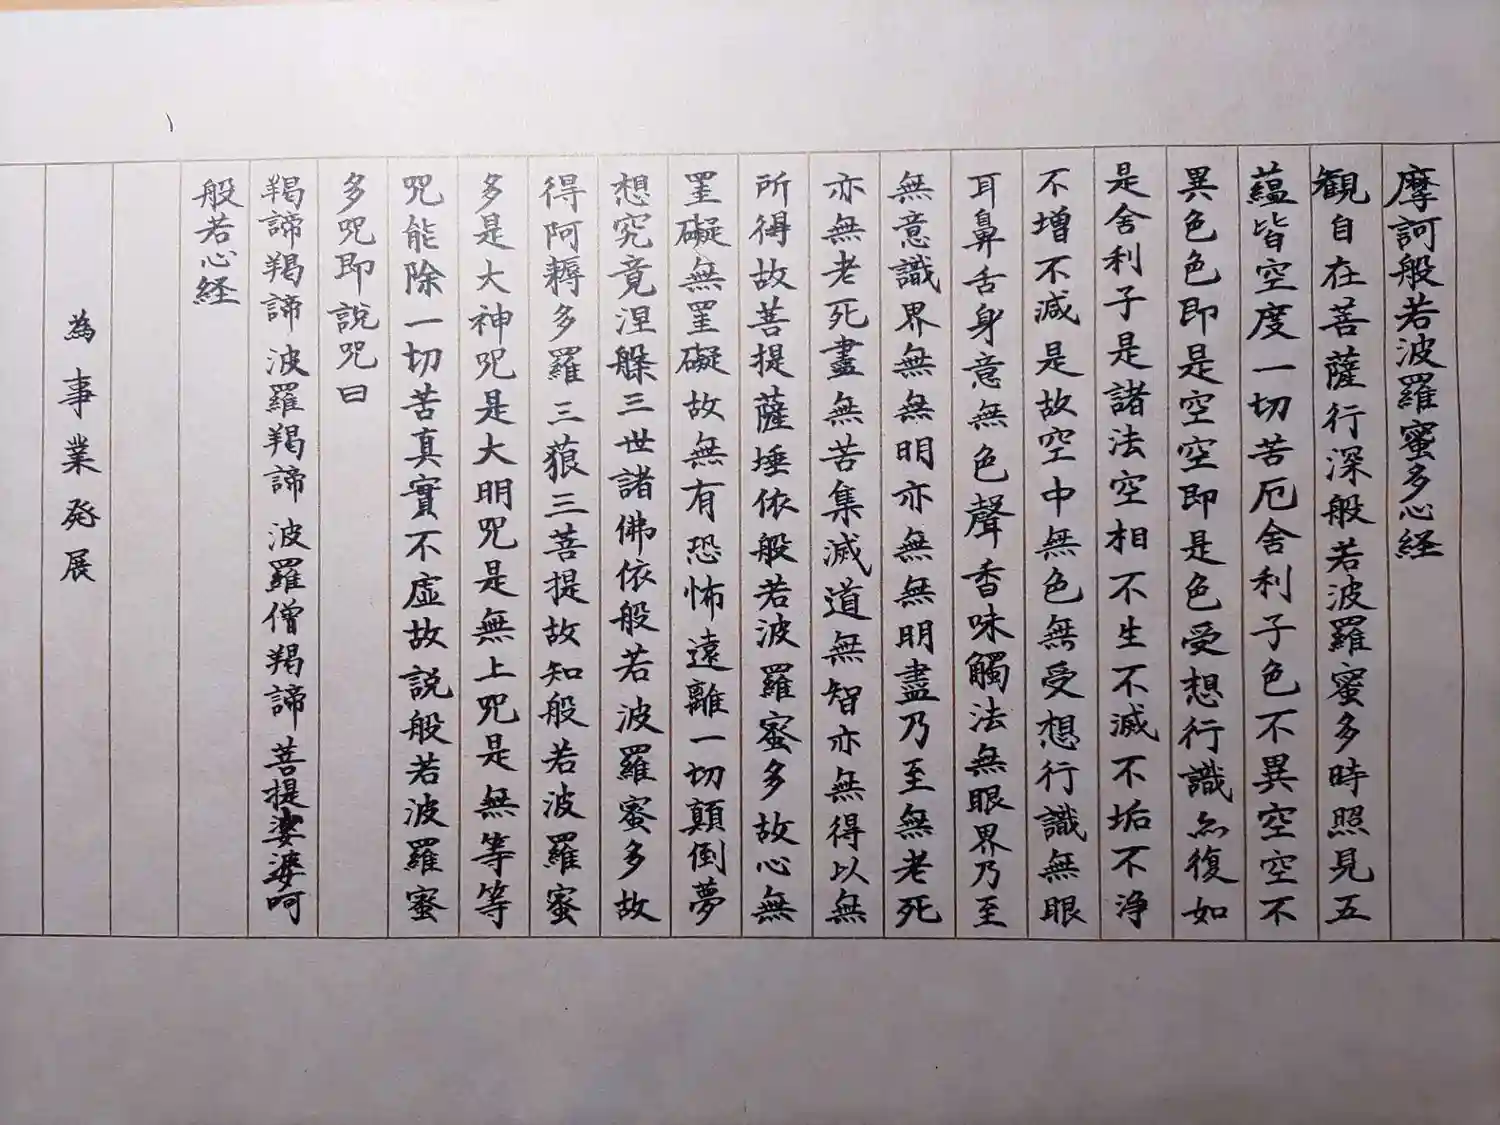 摩訶般若波羅蜜多心経
観自在菩薩行深般若波羅蜜多時照見五
蘊皆空度一切苦厄舍利子色不異空空不
異色色即是空空即是色受想行識亦復如
是舍利子是諸法空相不生不滅不垢不浄
不増不減是故空中無色無受想行識無眼
耳鼻舌身意無色聲香味觸法無眼界乃至
無意識界無無明亦無無明盡乃至無老死
亦無老死盡無苦集滅道無智亦無得以無
所得故菩提薩埵依般若波羅蜜多故心無
罣礙無罣礙故無有恐怖遠離一切顛倒夢
想究竟涅槃三世諸佛依般若波羅蜜多故
得阿耨多羅三藐三菩提故知般若波羅蜜
多是大神咒是大明咒是無上咒是無等等
咒能除一切苦真實不虛故説般若波羅蜜
多咒即説咒曰
羯諦羯諦波羅羯諦波羅僧羯諦菩提婆婆呵
般若心経
為事業発展